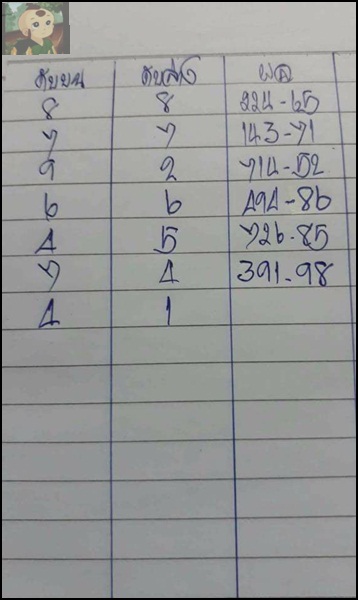 ดับบน ดับล่าง ผล
8 8 224-65
7 7 143-71
9 2 714-52
6 6 494-86
4 5 726-85
7 4 391-98
4 1